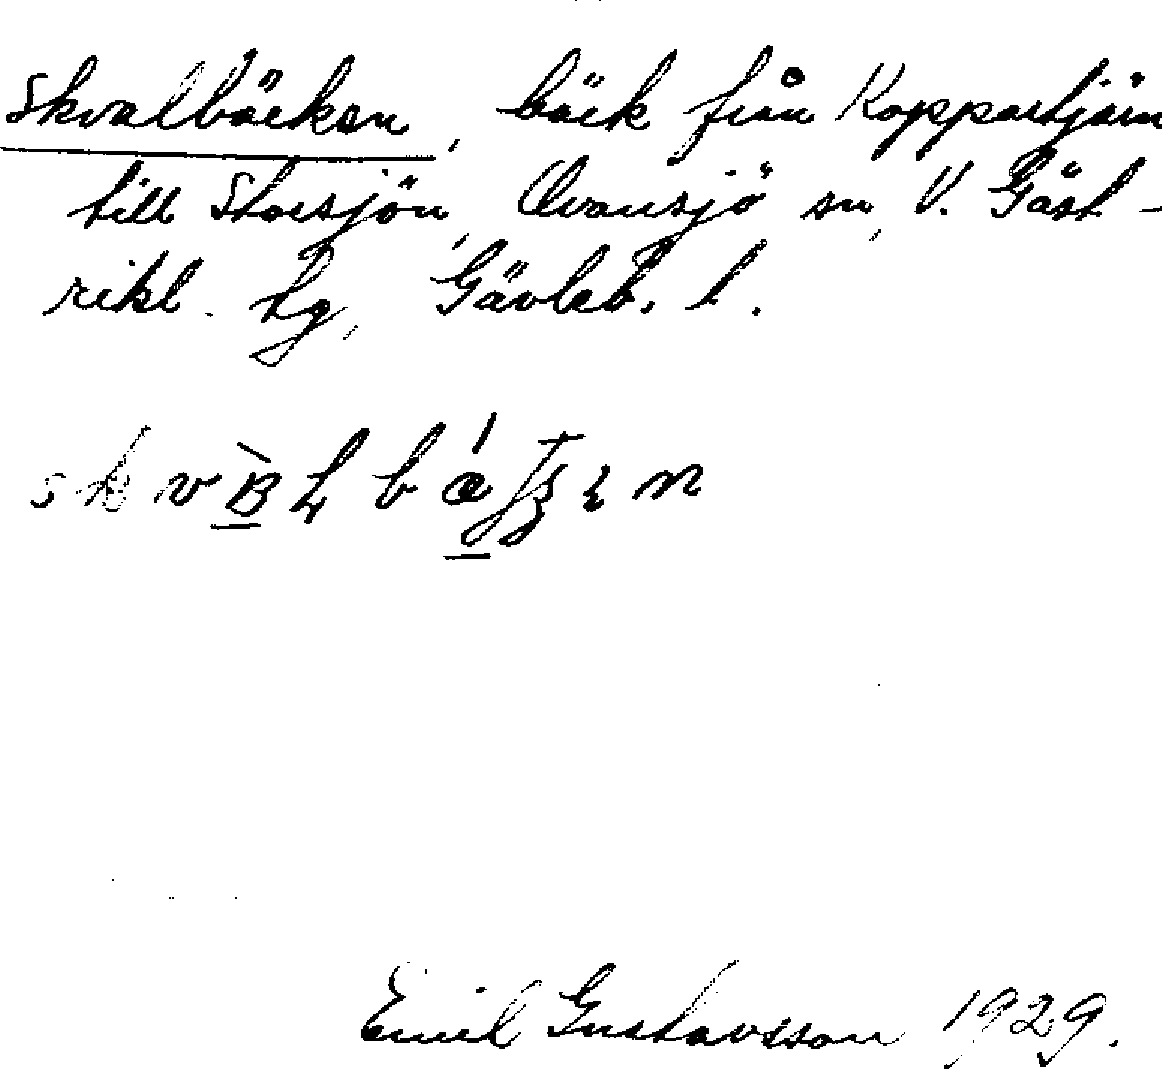 Skvalbäcken, bäck från Koppartjärn
till Storsjön, Ovansjö sn, V. Gäst-
rikl. hg, Gävleb. l.
Emil Gustavsson 1929.